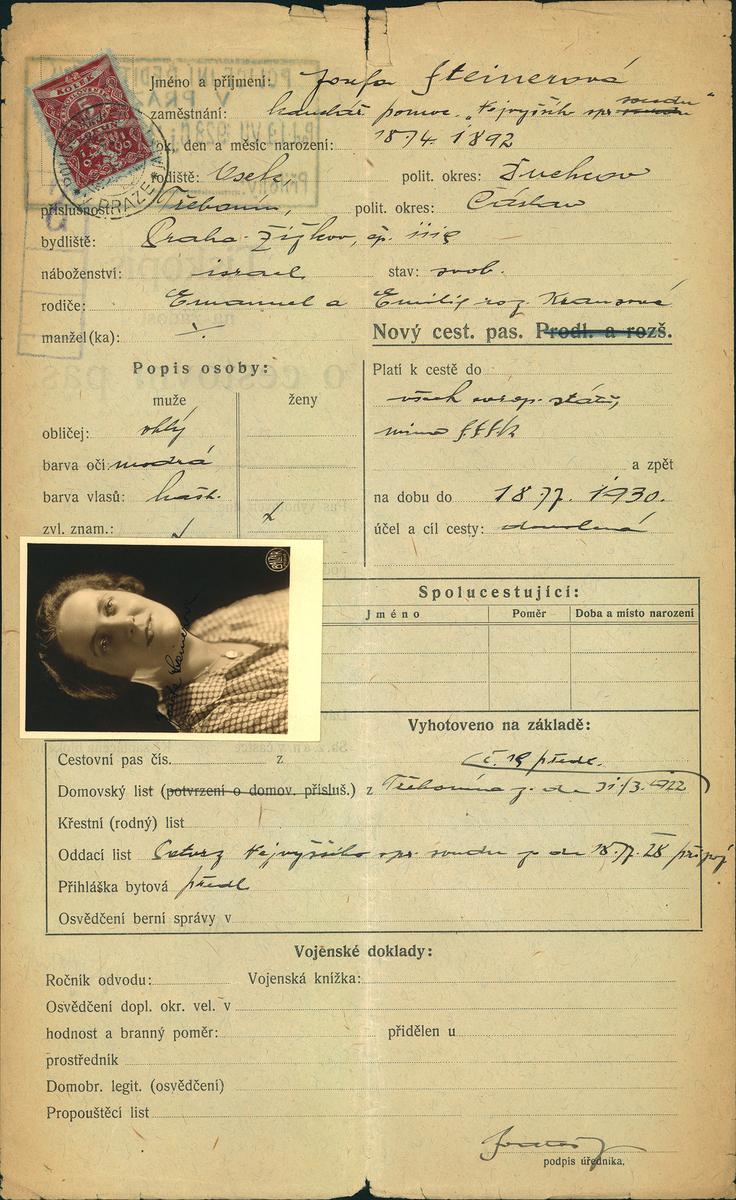 Jméno a příjmení: Josefa Steinerová
zaměstnání: kancelář. pomoc. „Nejvyššího spr. soudu“
rok, den a měsíc narození: 1892
rodiště: Osek, polit. okres: Duchcov
příslušnost: Třebonín, polit. okres: Čáslav
bydliště: Praha-Žižkov, čp.
náboženství: israel. stav: svob.
rodiče: Emanuel a Emilie roz. Krausová
manžel(ka):
Nový cest. pas. Prodl. a rozš.
Popis osoby:
muže ženy
obličej: oblý
barva očí: modrá
barva vlasů: kašt.
zvl. znam.:
Platí k cestě do
všech evrop. států,
mimo SSSR
a zpět
na dobu do 1930.
účel a cíl cesty: dovolená
Spolucestující:
Jméno Poměr Doba a místo narození
Vyhotoveno na základě:
Cestovní pas čís. z
Domovský list (potvrzení o domov. přísluš.) z Třebonína z. de 31/3. 1922
Křestní (rodný) list
Oddací list Nejvyššího spr. soudu
Přihláška bytová předl
Osvědčení berní správy v
Vojenské doklady:
Ročník odvodu: Vojenská knížka:
Osvědčení dopl. okr. vel. v
hodnost a branný poměr: přidělen u
prostředník
Domobr. legit. (osvědčení)
Propouštěcí list
podpis úředníka.